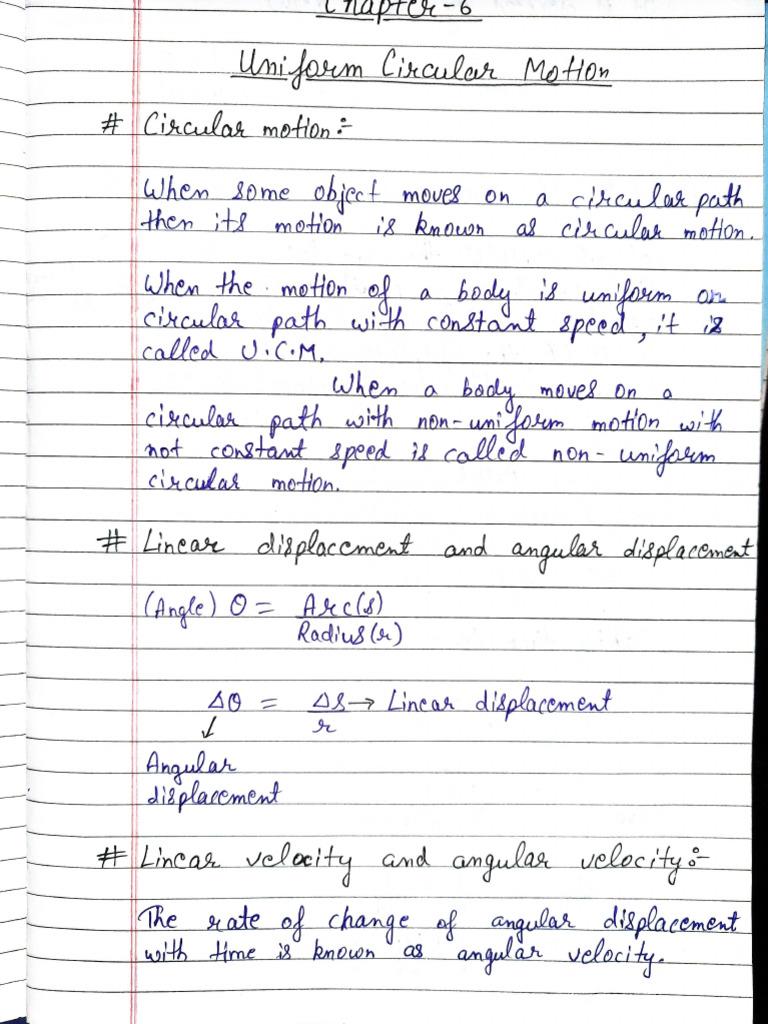 Chapter-6
Uniform Circular Motion
# Circular motion:-
When some object moves on a circular path
then its motion is known as circular motion.
When the motion of a body is uniform on
circular path with constant speed, it is
called U.C.M.
When a body moves on a
circular path with non-uniform motion with
not constant speed is called non-uniform
circular motion.
# Linear displacement and angular displacement
(Angle) θ = Arc(s)
Radius(r)
Δθ = Δs → Linear displacement
↓ r
Angular
displacement
# Linear velocity and angular velocity:-
The rate of change of angular displacement
with time is known as angular velocity.